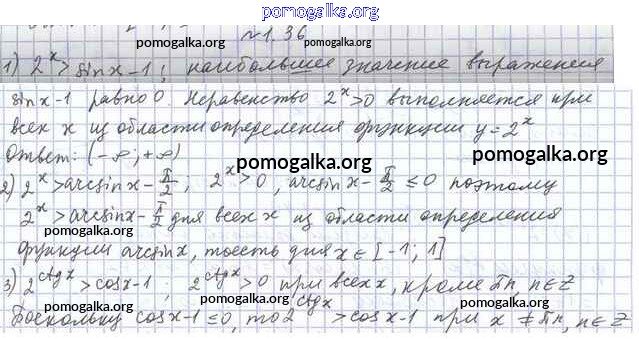 pomogalka.org
№1.36
pomogalka.org pomogalka.org
1) 2^x > sin x - 1; наибольшее значение выражения
sin x - 1 равно 0. Неравенство 2^x > 0 выполняется при
всех x из области определения функции y = 2^x
Ответ: (-∞; +∞)
pomogalka.org pomogalka.org
2) 2^x > arcsin x - π/2; 2^x > 0, arcsin x - π/2 ≤ 0 поэтому
2^x > arcsin x - π/2 для всех x из области определения
pomogalka.org
функции arcsin x, то есть для x ∈ [-1; 1]
pomogalka.org
3) 2^ctg x > cos x - 1; 2^ctg x > 0 при всех x, кроме πn, n ∈ Z
pomogalka.org pomogalka.org
Поскольку cos x - 1 ≤ 0, то 2^ctg x > cos x - 1 при x ≠ πn, n ∈ Z